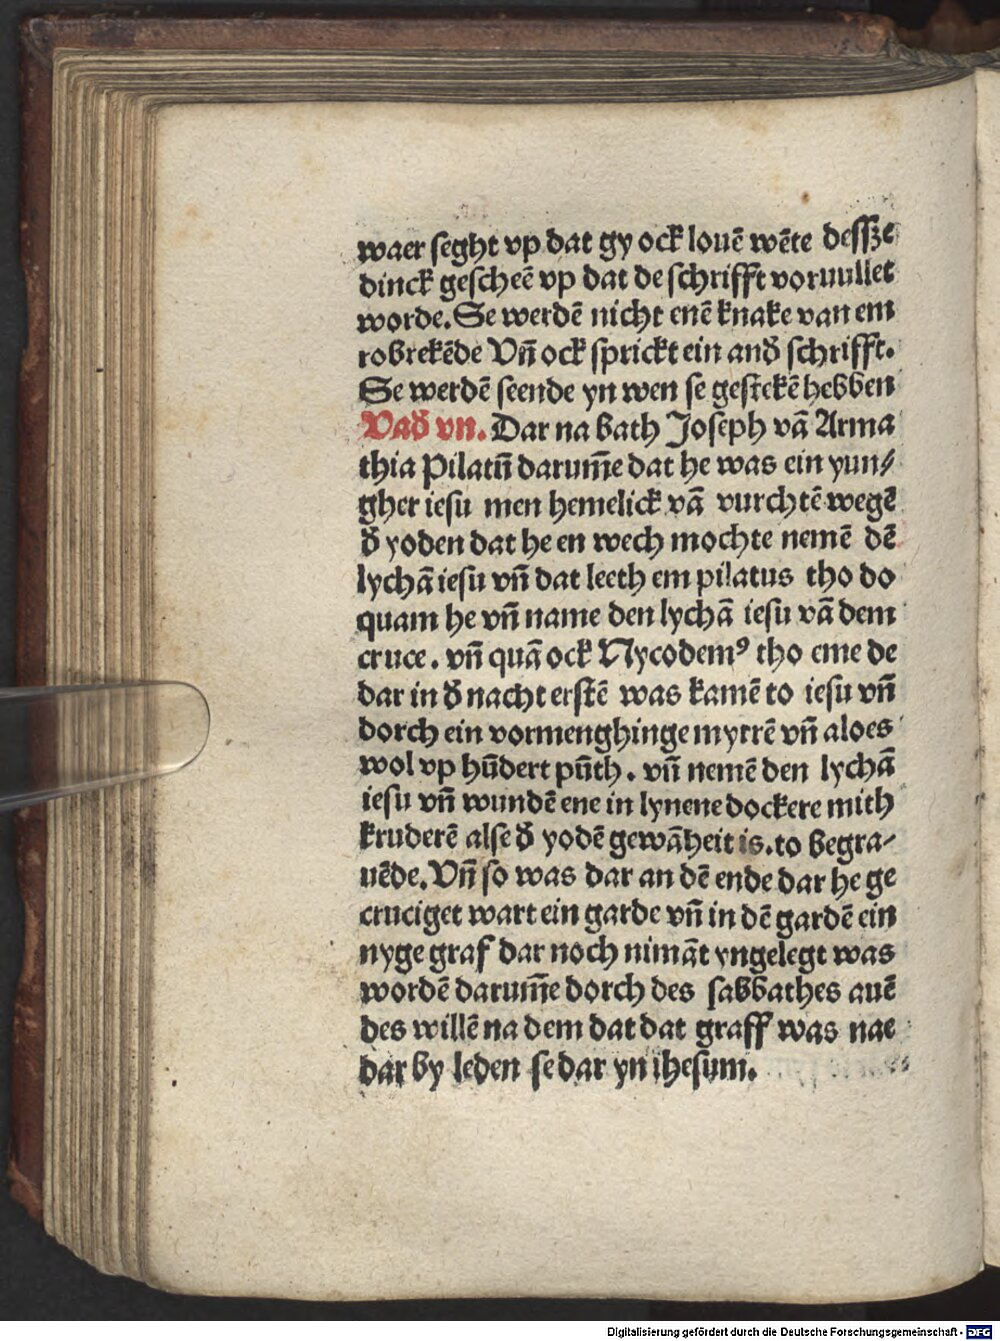 waer seght vp dat gy ock louē wēte desſze
dinck gescheē vp dat de schrifft voruullet
worde. Se werdē nicht enē knake van em
tobrekēde Vn̄ ock sprickt ein and̄ schrifft.
Se werdē seende yn wen se gestekē hebben
Vad̄ vn. Dar na bath Joseph vā Arma
thia Pilatū darum̄e dat he was ein yun⸗
gher iesu men hemelick vā vurchtē wegē
d̄ yoden dat he en wech mochte nemē dē
lychā iesu vn̄ dat leeth em pilatus tho do
quam he vn̄ name den lychā iesu vā dem
cruce. vn̄ quā ock Nycodemꝰ tho eme de
dar in d̄ nacht erstē was kamē to iesu vn̄
dorch ein vormenghinge myrrē vn̄ aloes
wol vp hūdert pūth. vn̄ nemē den lychā
iesu vn̄ wundē ene in lynene dockere mith
kruderē alse d̄ yodē gewāheit is. to begra⸗
uēde. Vn̄ so was dar an dē ende dar he ge
cruciget wart ein garde vn̄ in dē gardē ein
nyge graf dar noch nimāt yngelegt was
wordē darum̄e dorch des sabbathes auē
des willē na dem dat dat graff was nae
dar by leden se dar yn ihesum.
Digitalisierung gefördert durch die Deutsche Forschungsgemeinschaft - DFG